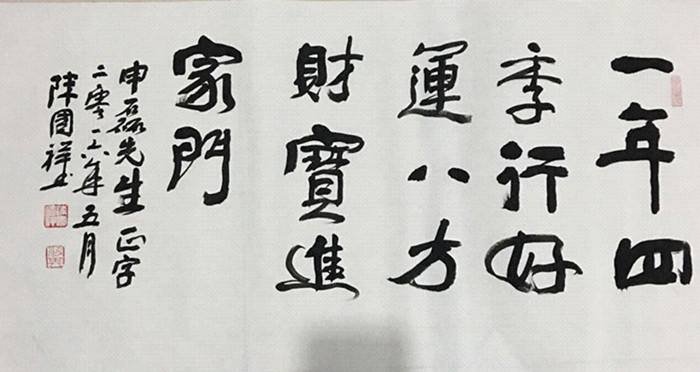 一年四
季行好
運八方
財寶進
家門
申磊先生正字
二零一六年五月
陳國祥书